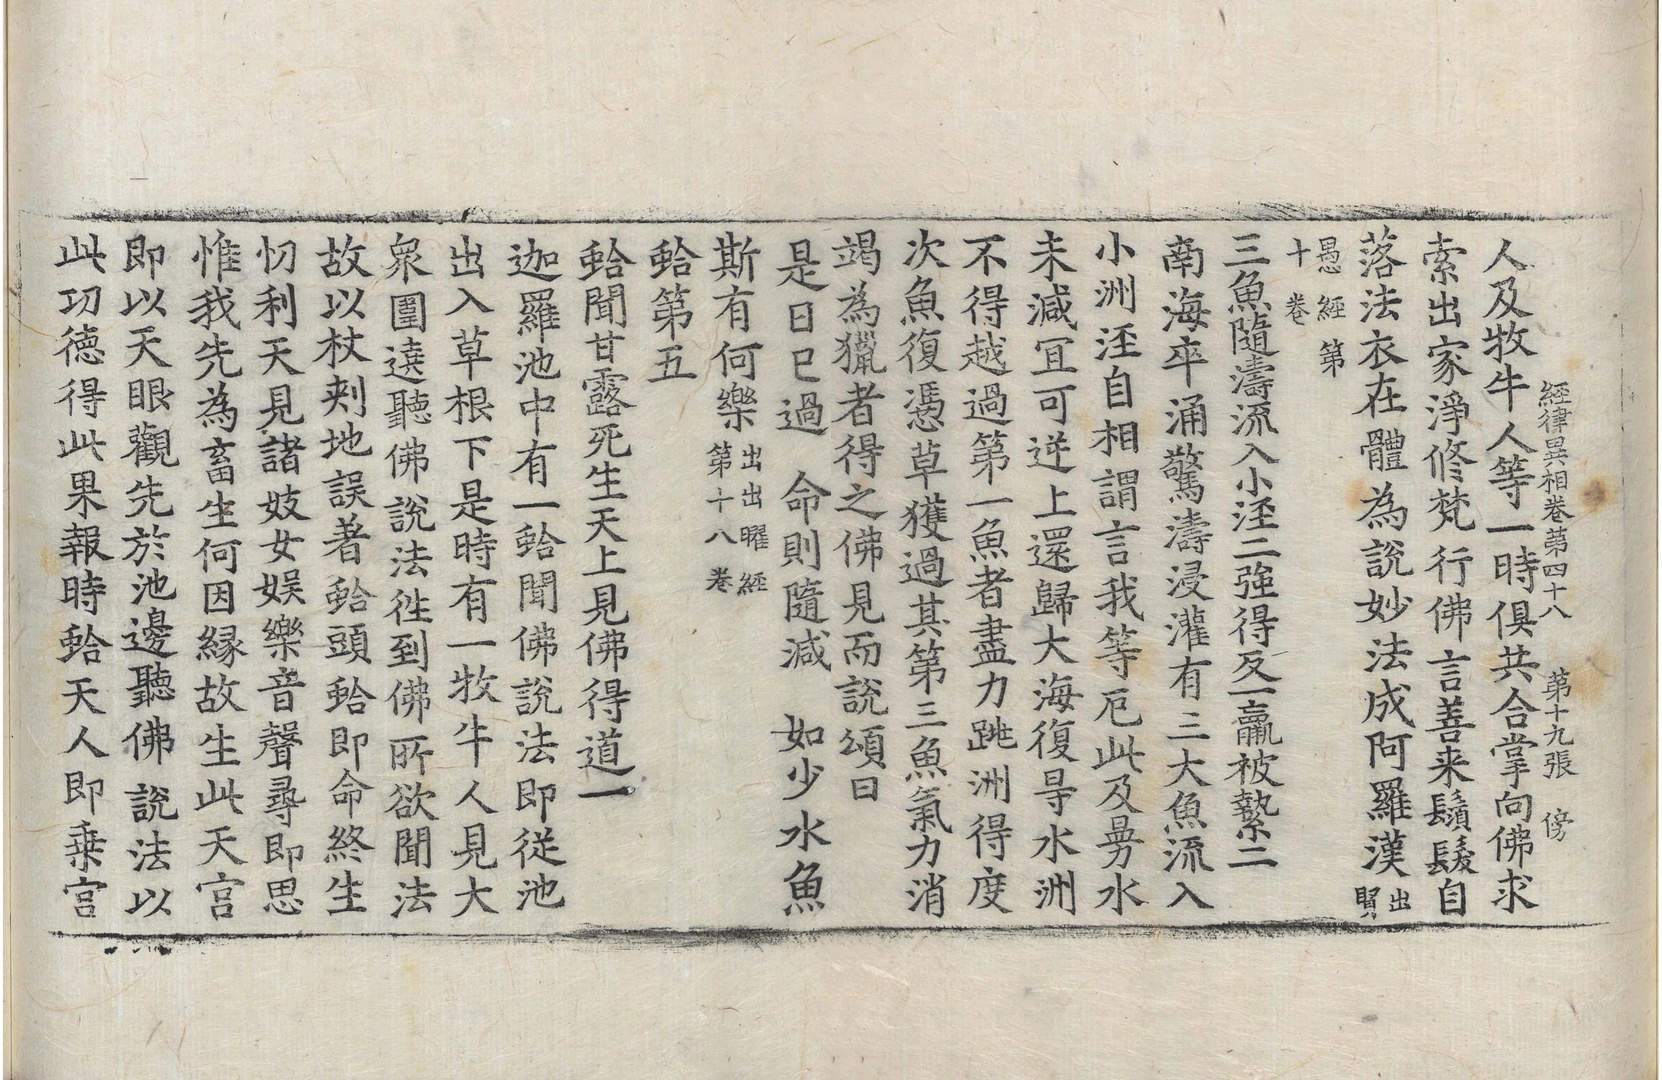 經律異相卷第四十八　第十九張　傍
人及牧牛人等一時俱共合掌向佛求
索出家淨修梵行佛言善来鬚髮自
落法衣在體為說妙法成阿羅漢出賢
愚經第
十卷
三魚隨濤流入小涇二強得反一羸被縶二
南海卒涌驚濤浸灌有三大魚流入
小洲涇自相謂言我等厄此及曼水
未減冝可逆上還歸大海復㝵水洲
不得越過第一魚者盡力跳洲得度
次魚復憑草獲過其第三魚氣力消
竭為獵者得之佛見而說頌曰
是日已過　命則隨減　如少水魚
斯有何樂出出曜經
第十八卷
蛤第五
蛤聞甘露死生天上見佛得道一
迦羅池中有一蛤聞佛說法即從池
出入草根下是時有一牧牛人見大
衆圍遶聽佛說法徃到佛所欲聞法
故以杖刾地誤著蛤頭蛤即命終生
忉利天見諸妓女娱樂音聲尋即思
惟我先為畜生何因緣故生此天宫
即以天眼觀先於池邊聽佛說法以
此功德得此果報時蛤天人即乗宫